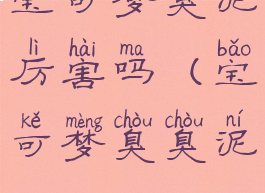 宝可梦臭泥
lì hài ma bǎo
厉害吗（宝
kě mèng chòu chòu ní
可梦臭臭泥